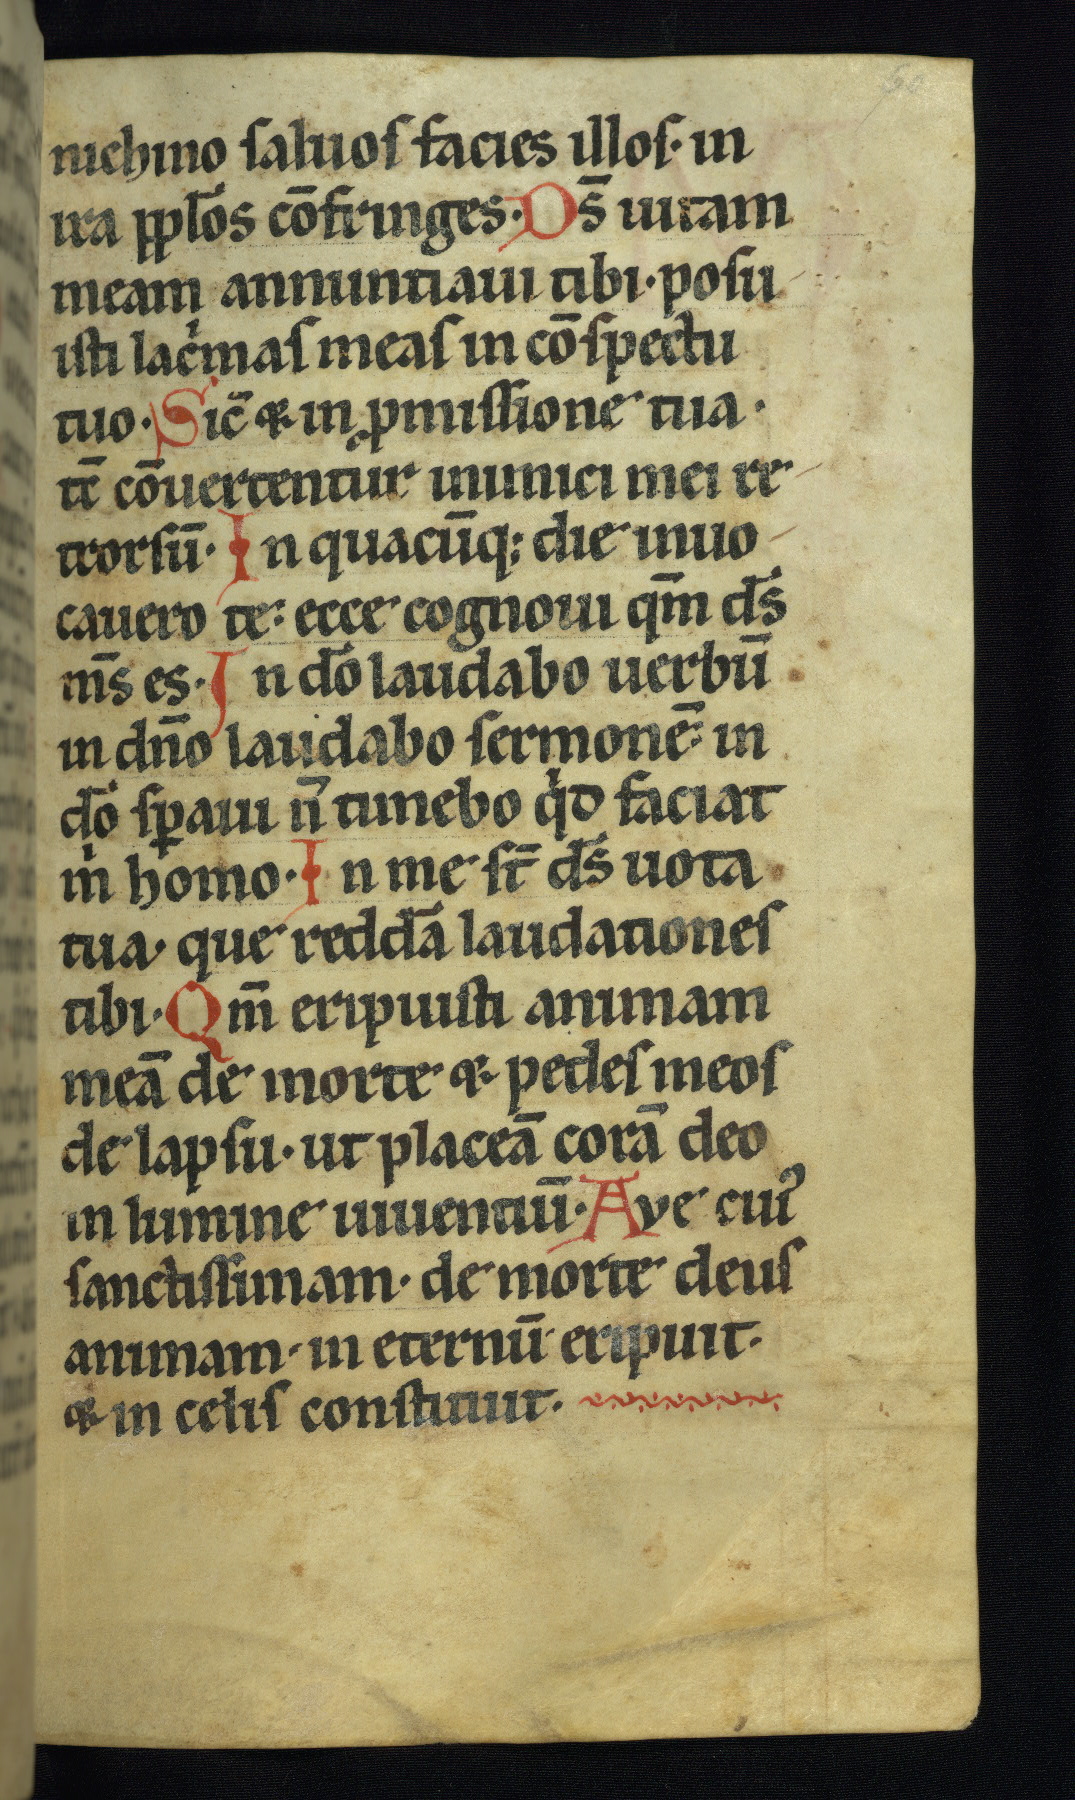 nichilo saluos facies illos· in
ira ppl̅os co̅fringes· Ds̅ uitam
meam annuntiaui tibi· posu
isti lac̍mas meas in co̅spectu
tuo· Sic̅ ⁊ in ꝓmissione tua·
tc̅ co̅uertentur inimici mei re
trorsu̅· In quacu̅q; die inuo
cauero te: ecce cognoui qm̅ ds̅
ms̅ es· In do̅ laudabo uerbu̅
in dn̅o laudabo sermone̅: in
do̅ sꝑaui n̅ timebo qͥd faciat
mͥ homo· In me st̅ ds̅ uota
tua· que redda̅ laudationes
tibi· Qm̅ eripuisti animam
mea̅ de morte ⁊ pedes meos
de lapsu· ut placea̅ cora̅ deo
in lumine uiuentiu̅· Ave cuiꝰ
sanctissimam· de morte deus
animam· in eternu̅ eripuit·
⁊ in celis constituit·